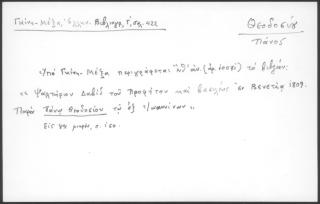 Γκίνη - Μέξα, Ἑλλην. Βιβλιογρ., Γ', σελ. 422
Θεοδοσίου
Πάνος
Ὑπὸ Γκίνη - Μέξα περιγράφεται τὸ βιβλίον:
"Ψαλτήριον Δαβὶδ τοῦ Προφήτου καὶ βασιλέως ἐν Βενετίᾳ 1809.
Παρὰ Πάνῳ Θεοδοσίου τῷ ἐξ Ἰωαννίνων".
Εἰς